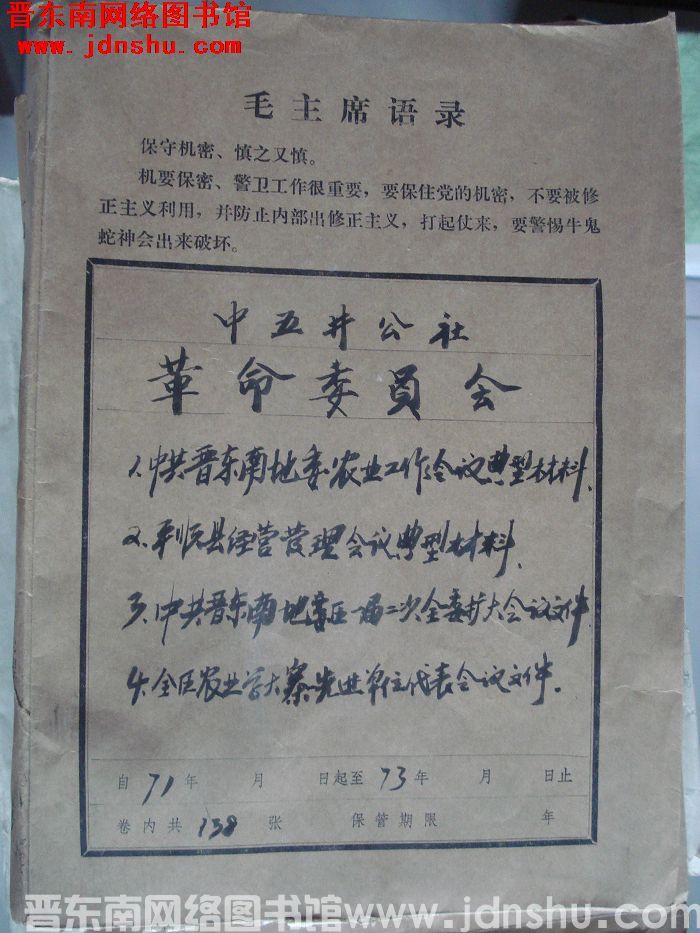 晋东南网络图书馆
www.jdnshu.com
毛主席语录
保守机密、慎之又慎。
机要保密、警卫工作很重要，要保住党的机密，不要被修
正主义利用，并防止内部出修正主义，打起仗来，要警惕牛鬼
蛇神会出来破坏。
中五井公社
革命委员会
1.中共晋东南地委农业工作会议典型材料.
2.平顺县经营管理会议典型材料.
3.中共晋东南地委一届二次全委扩大会议文件
4.全区农业学大寨先进单位代表会议文件.
自71年 月 日起至73年 月 日止
卷内共138张 保管期限 年
晋东南网络图书馆 www.jdnshu.com